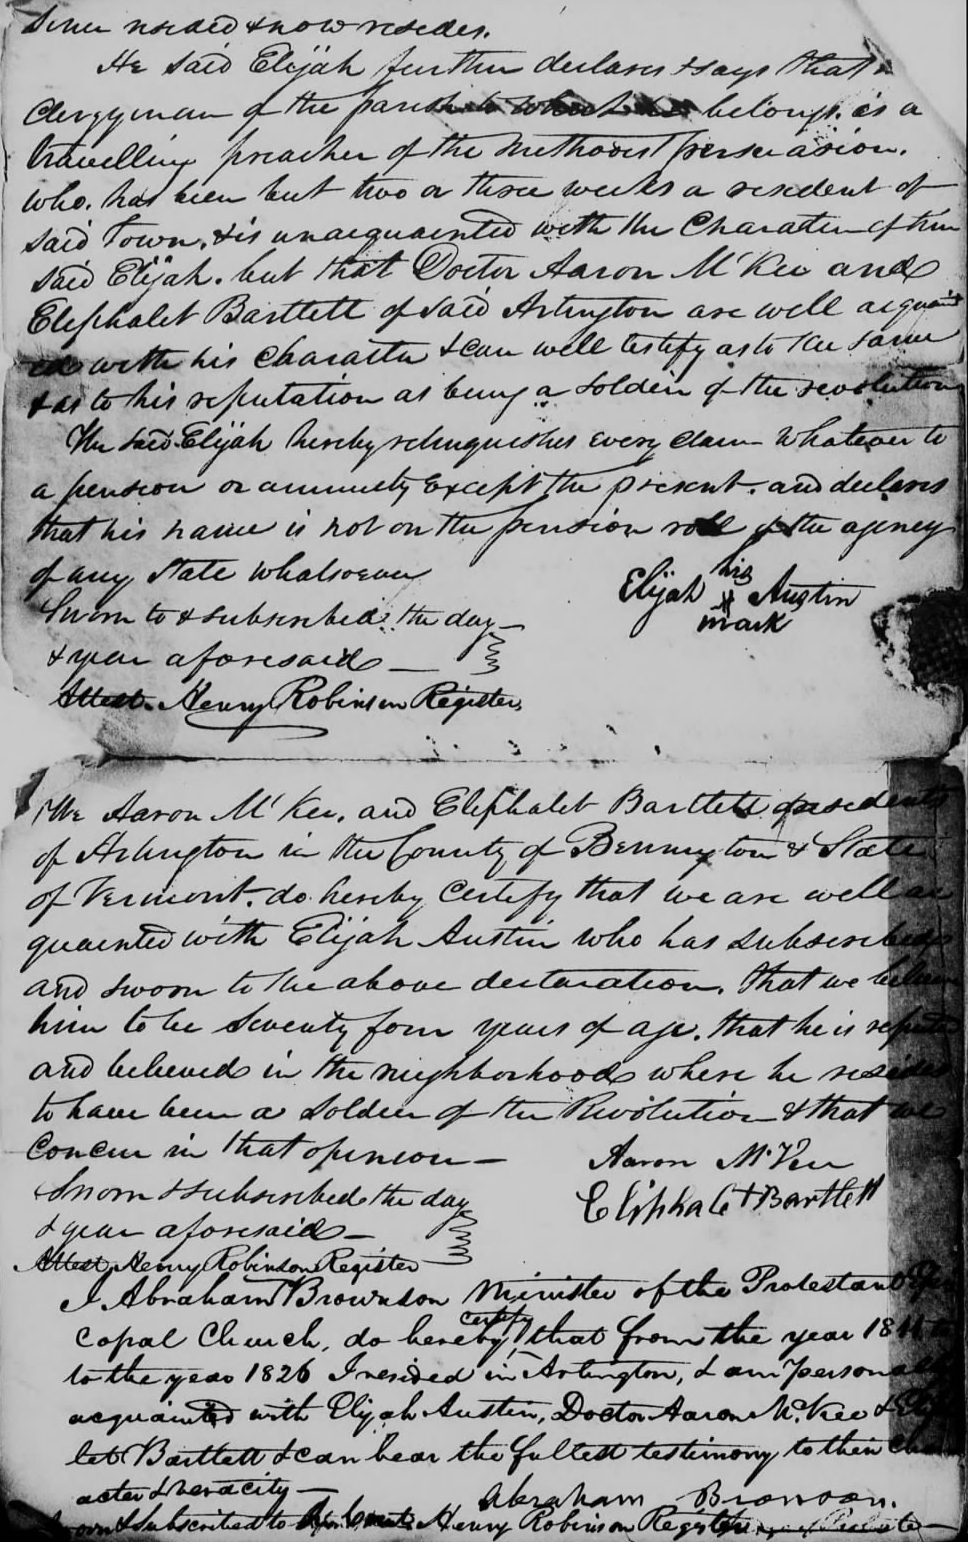 since resided & now resides.
He said Elijah further declares & says that
Clergyman of the parish to which he belongs, is a
travelling preacher of the Methodist persuasion.
who, has been but two or three weeks a resident of
said Town, & is unacquainted with the Character of him
said Elijah. but that Doctor Aaron McKee and
Eliphalet Bartlett of said Arlington are well acquaint
ed with his character & can well testify as to the same
& as to his reputation as being a soldier of the revolution
The said Elijah hereby relinquishes every claim whatever to
a pension or annuity except the present. and declares
that his name is not on the pension roll of the agency
of any State whatsoever
Elijah his # mark Austin
Sworn to & subscribed the day
& year aforesaid
Attest. Henry Robinson Register
We Aaron McKee, and Eliphalet Bartlett residents
of Arlington in the County of Bennington & State
of Vermont. do hereby certify that we are well ac
quainted with Elijah Austin who has subscribed
and sworn to the above declaration. that we believe
him to be seventy four years of age. that he is reputed
and believed in the neighborhood where he resides
to have been a soldier of the Revolution & that we
concur in that opinion
Aaron McKee
Sworn & subscribed the day
Eliphalet Bartlett
& year aforesaid
Attest Henry Robinson Register
I Abraham Brownson Minister of the Protestant Epis
copal Church, do hereby certify that from the year
to the year 1826 I resided in Arlington, & am personally
acquainted with Elijah Austin, Doctor Aaron McKee & Elipha
let Bartlett & can bear the fullest testimony to their char
acter & veracity
Abraham Bronson.
Sworn & subscribed to Henry Robinson Register